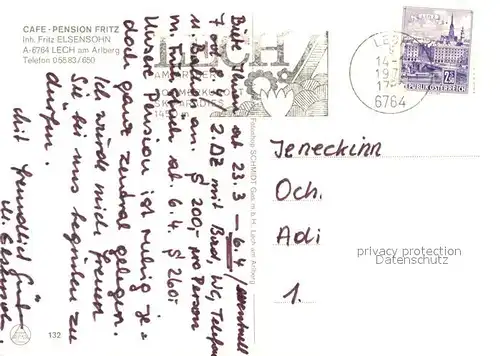 CAFE-PENSION FRITZ
Inh. Fritz ELSENSOHN
A-6764 LECH am Arlberg
Telefon 05583/650
LECH
AM ARLBERG
SOMMERKURORT
SKIPARADIES
1450 m
6764
2S
REPUBLIK ÖSTERREICH
Biete Ihnen ab 23.3 – 6.4/eventuell
7 oder 2 DZ mit Bad, WC, Telefon
u. an. § 200,- pro Person
m. Frühstück ab. 6.4. § 260,-
Unsere Pension ist ruhig je-
doch ganz zentral gelegen.
Ich würde mich freuen
Sie bei uns begrüßen zu
dürfen.
mit freundlich
Fotoshop SCHMIDT Ges.m.b.H. Lech am Arlberg
Jeneckinn
Och.
Adi
1.
privacy protection
Datenschutz
132